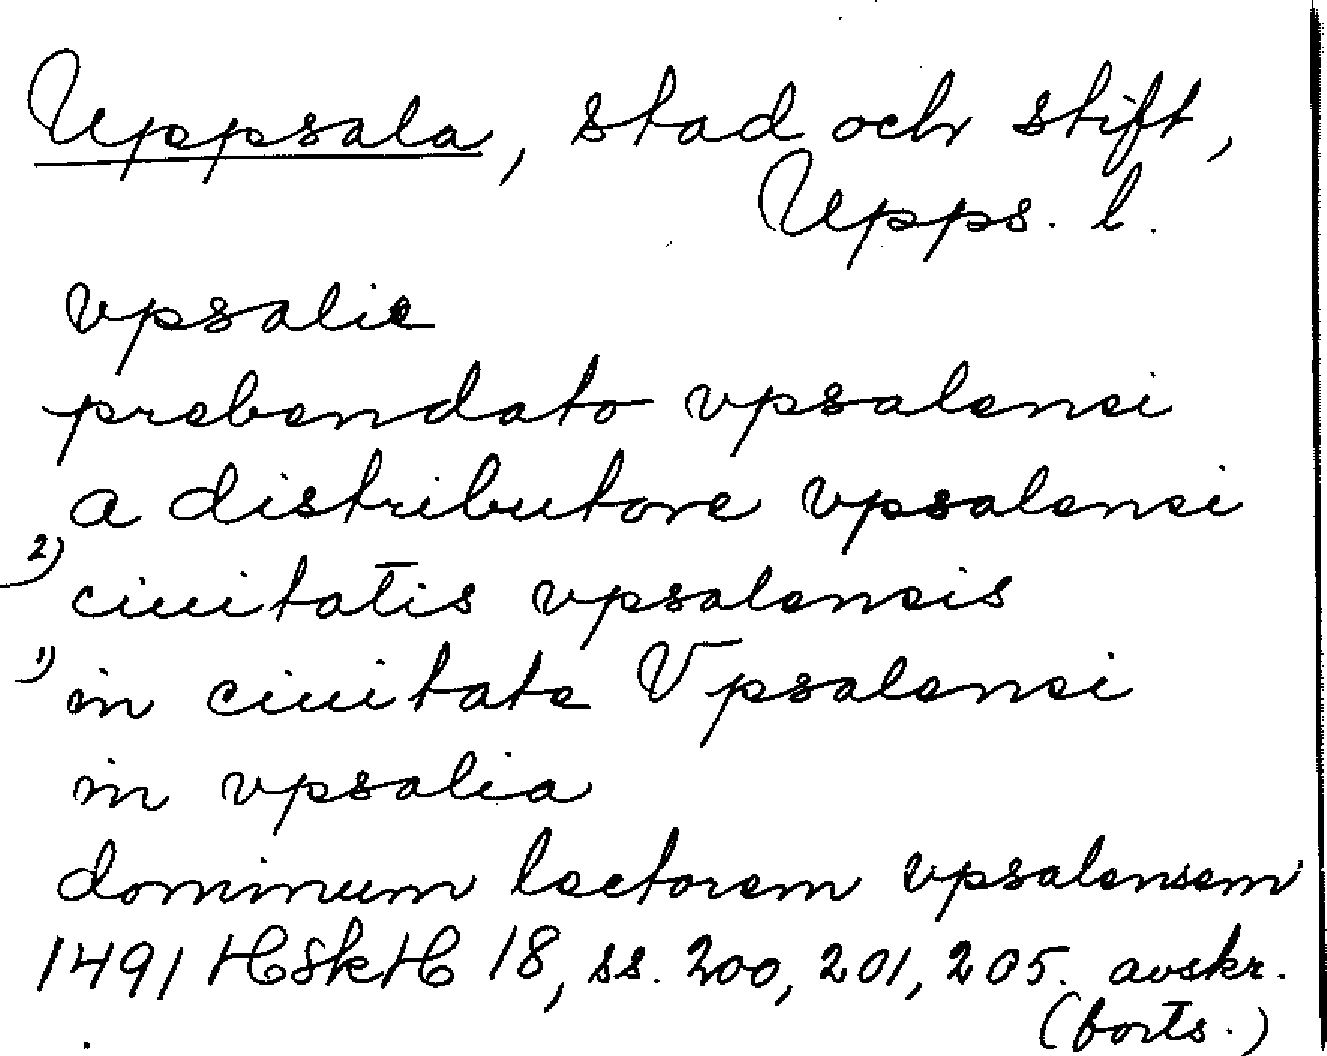 Uppsala, stad och stift,
Upps. l.
vpsalie
prebendato vpsalensi
a distributore vpsalensi
2) ciuitatis vpsalensis
1) in ciuitate Vpsalensi
in vpsalia
dominum lectorem vpsalensem
1491 HSkH 18, ss. 200, 201, 205. avskr.
(forts.)